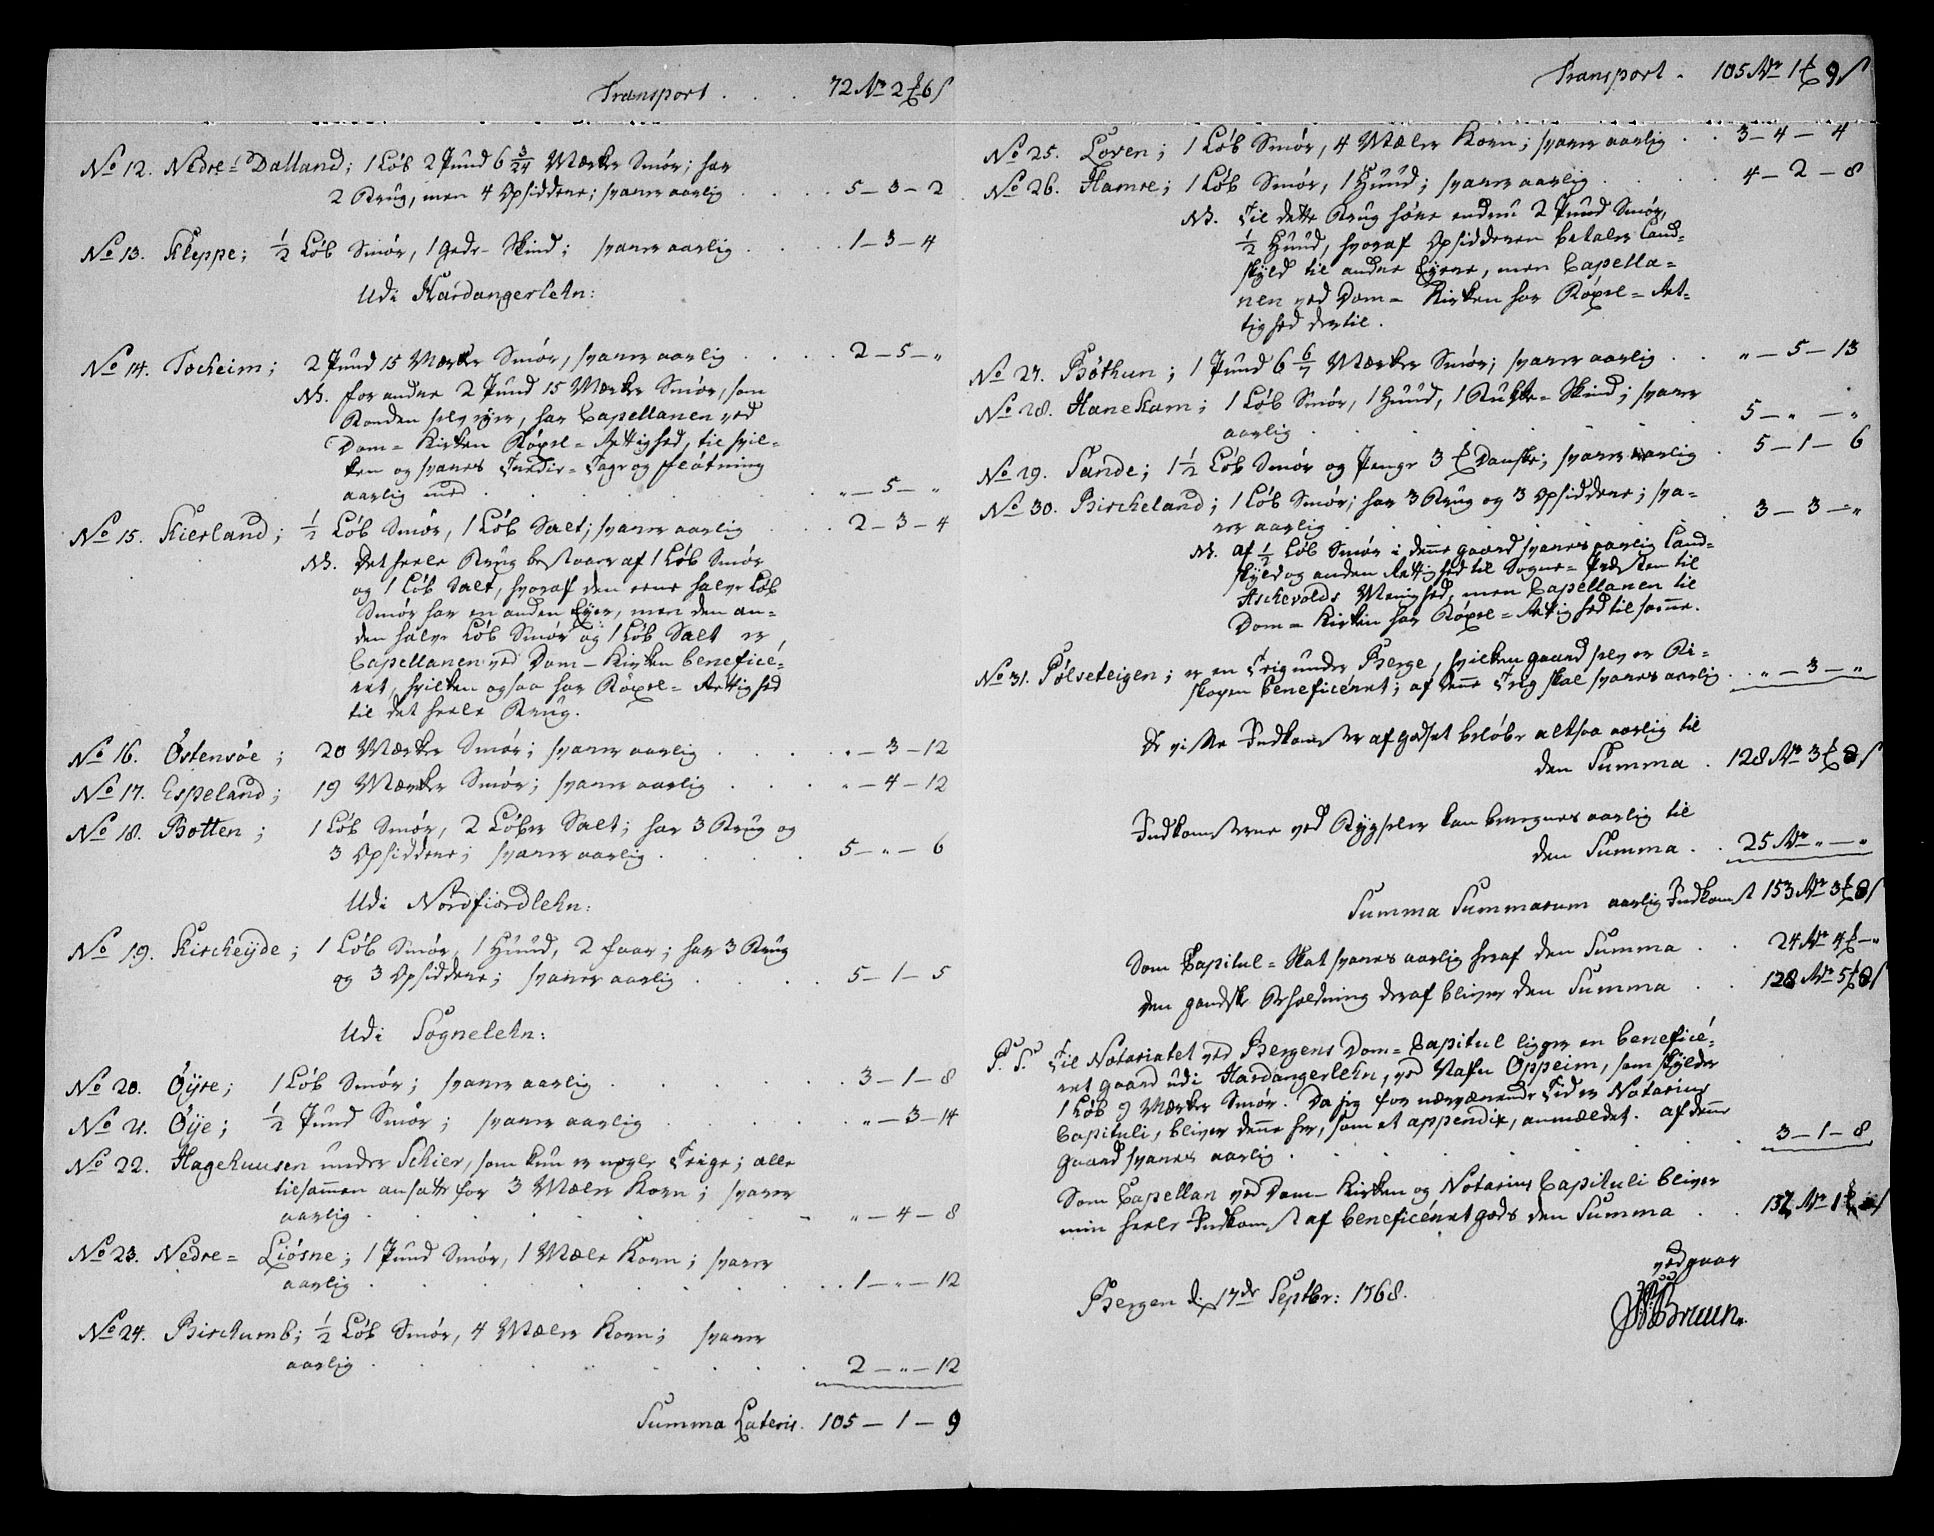 Transport . . . 72 Mr 2 ₰ 6 s
No 12. Nedre= Dalland; 1 Løb 2 Pund 6 3/24 Mærker Smør; har
2 Brug, men 4 Opsiddere; svarer aarlig . . . 5 — 3 — 2
No 13. Kleppe; 1/2 Løb Smør, 1 Gede- Skind; svarer aarlig . . . 1 — 3 — 4
Udi Hardangerlehn:
No 14. Tocheim; 2 Pund 15 Mærker Smør, svarer aarlig . . . 2 — 5 — "
NB. for andre 2 Pund 15 Mærker Smør, som
Bonden selv ejer, har Capellanen ved
Dom= Kirken Böxel= Rettighed, til hvil-
ken og svares Tredie= Tage og Fløtning
aarlig med . . . " — 5 — "
No 15. Kierland; 1/2 Løb Smør, 1 Løb Salt; svarer aarlig . . . 2 — 3 — 4
NB. Det heele Brug bestaaer af 1 Løb Smør
og 1 Løb Salt, hvoraf den eene halve Løb
Smør har en anden Ejer, men den an-
den halve Løb Smør og 1 Løb Salt er
Capellanen ved Dom- Kirken beneficé-
ret, hvilken ogsaa har Böxel= Rettighed
til det heele Brug.
No 16. Östensöe; 20 Mærker Smør; svarer aarlig . . . " — 3 — 12
No 17. Espeland; 19 Mærker Smør; svarer aarlig . . . " — 4 — 12
No 18. Botten; 1 Løb Smør, 2 Løber Salt; har 3 Brug og
3 Opsiddere; svarer aarlig . . . 5 — " — 6
Udi Nordfiordlehn:
No 19. Kircheÿde; 1 Løb Smør, 1 Huud, 2 Faar; har 3 Brug
og 3 Opsiddere; svarer aarlig . . . 5 — 1 — 5
Udi Sognelehn:
No 20. Öÿre; 1 Løb Smør; svarer aarlig . . . 3 — 1 — 8
No 21. Öÿe; 1/2 Pund Smør; svarer aarlig . . . " — 3 — 14
No 22. Hagehuusen under Schier, som kun er nogle Teige; alle
tilsammen ansatte for 3 Mæler Korn; svarer
aarlig . . . " — 4 — 8
No 23. Nedre= Liösne; 1 Pund Smør, 1 Mæle Korn; svarer
aarlig . . . 1 — " — 12
No 24. Birchumb; 1/2 Løb Smør, 4 Mæler Korn; svarer
aarlig . . . 2 — " — 12
Summa Lateris. 105 — 1 — 9
Transport . 105 Mr 1 ₰ 9 s
No 25. Loven; 1 Løb Smør, 4 Mæler Korn; svarer aarlig . . 3 — 4 — 4
No 26. Hamre; 1 Løb Smør, 1 Huud; svarer aarlig . . . 4 — 2 — 8
NB. Til dette Brug høre endnu 2 Pund Smør,
1/2 Huud, hvoraf Opsidderen betaler Land=
skyld til andre Ejere, men Capella=
nen ved Dom= Kirken har Böxel= Ret=
tighed dertil.
No 27. Böthun; 1 Pund 6 6/7 Mærker Smør; svarer aarlig . . " — 5 — 13
No 28. Hanekam; 1 Løb Smør, 1 Huud, 1 Bukke= Skind; svarer
aarlig . . . 5 — " — "
No 29. Sande; 1 1/2 Løb Smør og Penge 3 ₰ Danske; svarer aarlig . 5 — 1 — 6
No 30. Bircheland; 1 Løb Smør; har 3 Brug og 3 Opsiddere; sva-
rer aarlig . . . 3 — 3 — "
NB. af 1/2 Løb Smør i denne gaard svares aarlig Land=
skyld og anden Rettighed til Sogne= Præsten til
Aschevolds Menighed, men Capellanen til
Dom= Kirken har Böxel= Rettighed til samme.
No 31. Pölseteigen; er en Teig under Berge, hvilken gaard selv er Bi-
skopen beneficéret; af denne Teig skal svares aarlig . . " — 3 — "
De visse Indkomster af godset beløbe altsaa aarlig til
den Summa . 128 Mr 3 ₰ 8 s
Indkomsterne ved Bygsler kan beregnes aarlig til
den Summa . . 25 Mr " — "
Summa Summarum aarlig Indkomst 153 Mr 3 ₰ 8 s
Som Capitul= Skat svares aarlig heraf den Summa . . 24 Mr 4 ₰ — "
Den gandske Beholdning deraf bliver den Summa . . 128 Mr 5 ₰ 8 s
P. S. Til Notariatet ved Bergens Dom= Capitul ligger en beneficé-
ret gaard udi Hardangerlehn, ved Nafn Oppeim, som skylder
1 Løb 9 Mærker Smør. Da jeg for nærværende Tid er Notarius
Capituli, bliver denne her, som et appendix, anmældet. af denne
gaard svares aarlig . . . 3 — 1 — 8
Som Capellan ved Dom- Kirken og Notarius Capituli bliver
min heele Indkomst af beneficéret gods den Summa . . 132 Mr 1 ₰
vedgaar
Bergen d. 17de Septbr: 1768.
Bruun.